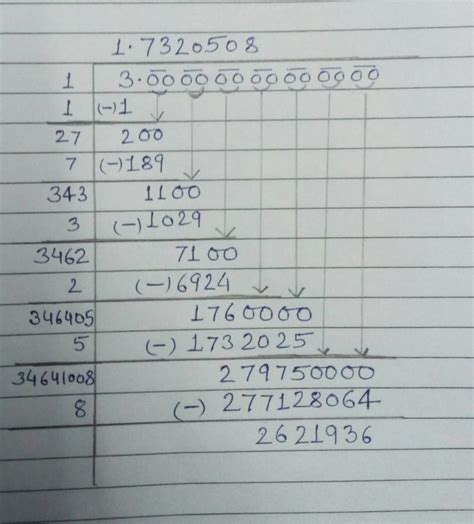 1.7320508
1 3.00 00 00 00 00 00 00
1 (-)1
27 200
7 (-)189
343 1100
3 (-)1029
3462 7100
2 (-)6924
346405 1760000
5 (-)1732025
34641008 279750000
8 (-)277128064
2621936